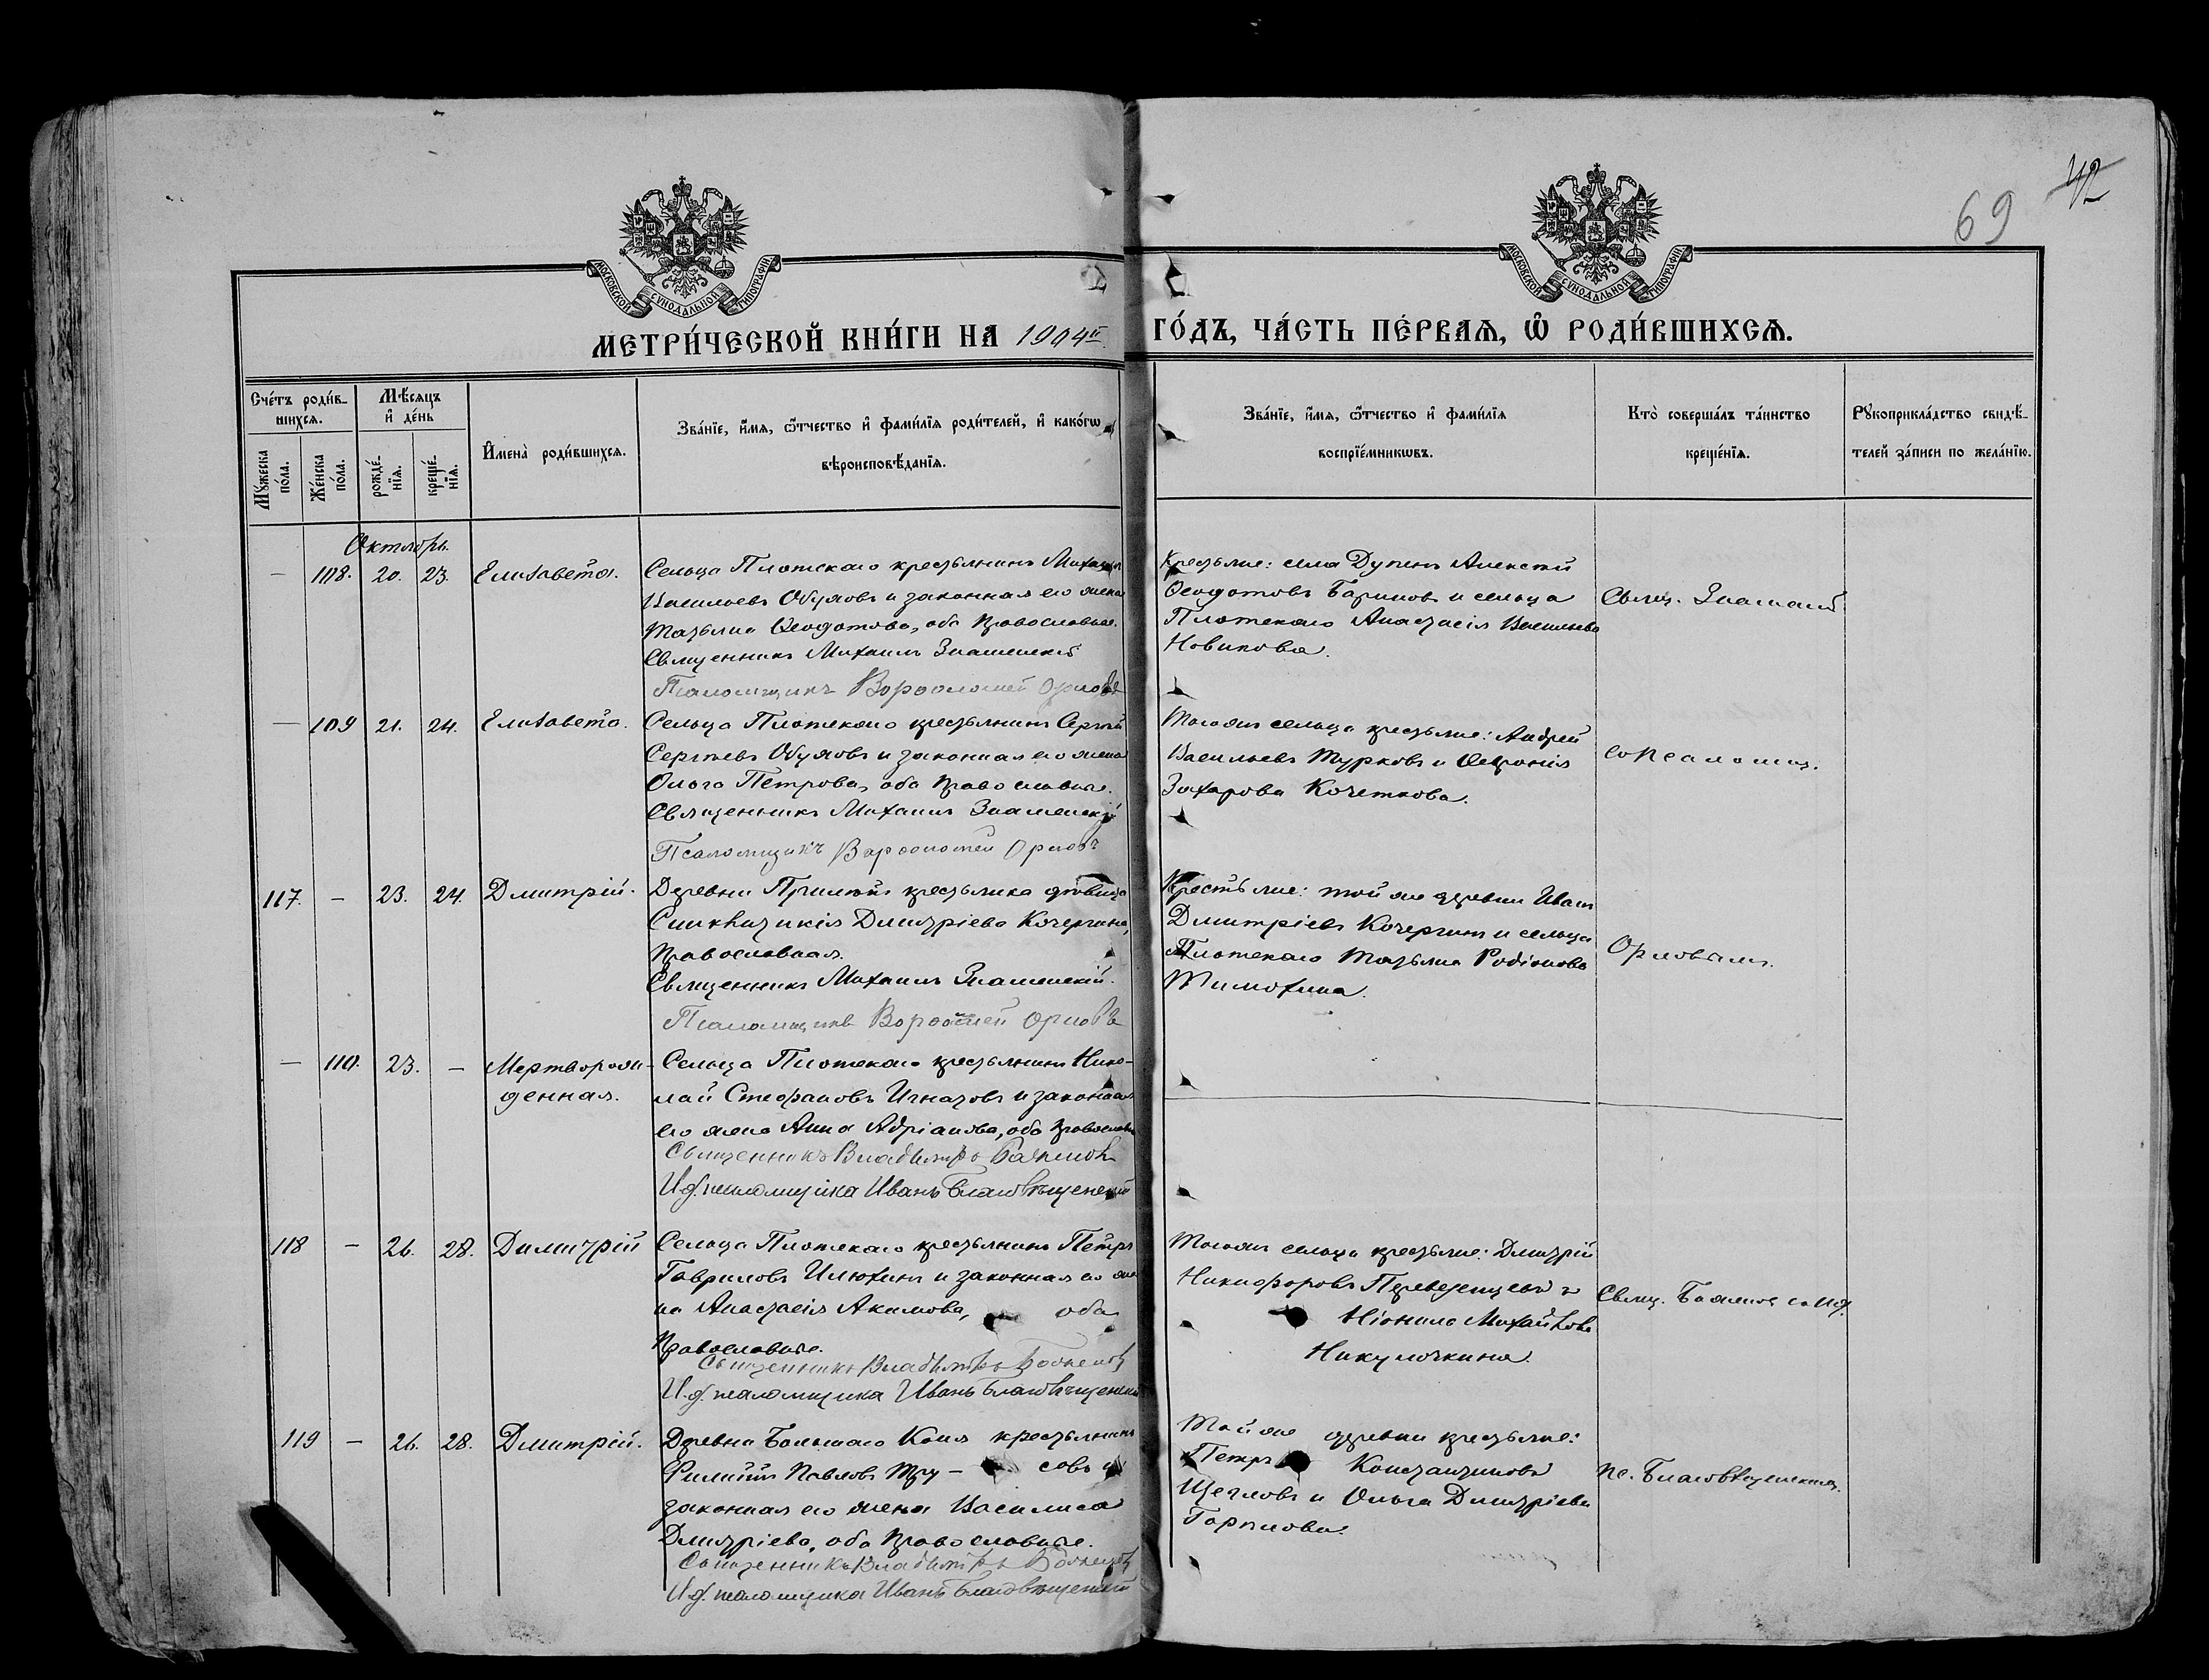 69 42
МОСКОВСКОЙ СУНОДАЛЬНОЙ ТИПОГРАФІИ
МОСКОВСКОЙ СУНОДАЛЬНОЙ ТИПОГРАФІИ
МЕТРИ́ЧЕСКОЙ КНИ́ГИ НА 1904й ГО́ДЪ, ЧА́СТЬ ПЕ́РВАЯ, Ѽ РОДИ́ВШИХСЯ.
Сче́тъ роди́в-
шихся.
Мꙋ́жеска по́ла.
Же́нска по́ла.
Мѣ́сяцъ и҆ де́нь
рожде́-
нїя.
креще́-
нїя.
И҆мена̀ роди́вшихся.
Зва́нїе, и҆́мя, ѻ҆́тчество и҆ фами́лїя роди́телей, и҆ како́гѡ
вѣроисповѣ́данїя.
Зва́нїе, и҆́мя, ѻ҆́тчество и҆ фами́лїя
воспрїе́мникѡвъ.
Кто̀ соверша́лъ та́инство
креще́нїя.
Рꙋкоприкла́дство свидѣ́-
телей за́писи по жела́нїю.
Октябрь.
— 108. 20. 23. Елисавета.
Сельца Плотскаго крестьянинъ Михаилъ
Васильевъ Обуховъ и законная его жена
Татьяна Ѳеодотова, оба православные.
Священникъ Михаилъ Знаменскій
Псаломщикъ Варѳоломей Орловъ
Крестьяне: села Алексѣй
Ѳеодотовъ Бариновъ и сельца
Плотскаго Анастасія Васильева
Новикова.
Свящ. Знаменск
— 109 21. 24. Елисавета.
Сельца Плотскаго крестьянинъ Сергѣй
Сергѣевъ Обуховъ и законная его жена
Ольга Петрова, оба православные.
Священникъ Михаилъ Знаменскій
Псаломщикъ Варѳоломей Орловъ
Того же сельца крестьяне: Андрей
Васильевъ Турковъ и Ѳевронія
Захарова Кочеткова.
со псаломщ.
117. — 23. 24. Дмитрій.
Деревни крестьянка дѣвица
Синклитикія Дмитріева Кочергина,
православная.
Священникъ Михаилъ Знаменскій.
Псаломщикъ Варѳоломей Орловъ
Крестьяне: той же деревни Иванъ
Дмитріевъ Кочергинъ и сельца
Плотскаго Татьяна Родіонова
Тимохина.
Орловымъ.
— 110. 23. — Мертворож-
денная.
Сельца Плотскаго крестьянинъ Нико-
лай Стефановъ Игнатовъ и законная
его жена Анна Адріанова, оба православн
Священникъ Владиміръ Баженовъ
И.д. псаломщика Иванъ Благовѣщенскій
118 — 26. 28. Димитрій
Сельца Плотскаго крестьянинъ Петръ
Гавриловъ Илюхинъ и законная его же
на Анастасія Акимова, оба
православные.
Священникъ Владиміръ Баженовъ
И.д. псаломщика Иванъ Благовѣщенскій
Того же сельца крестьяне: Дмитрій
Никифоровъ Перевезенцевъ и
Ніонила Михайлова
Никулочкина.
Свящ. Баженов со и.д.
119 — 26. 28. Дмитрій.
Деревни Большаго Коня крестьянинъ
Филиппъ Павловъ Тру- совъ и
законная его жена Василиса
Дмитріева, оба православные.
Священникъ Владиміръ Баженовъ
И.д. псаломщика Иванъ Благовѣщенскій
Той же деревни крестьяне:
Петръ Константиновъ
Щегловъ и Ольга Дмитріева
Горлова.
пс. Благовѣщенскимъ.